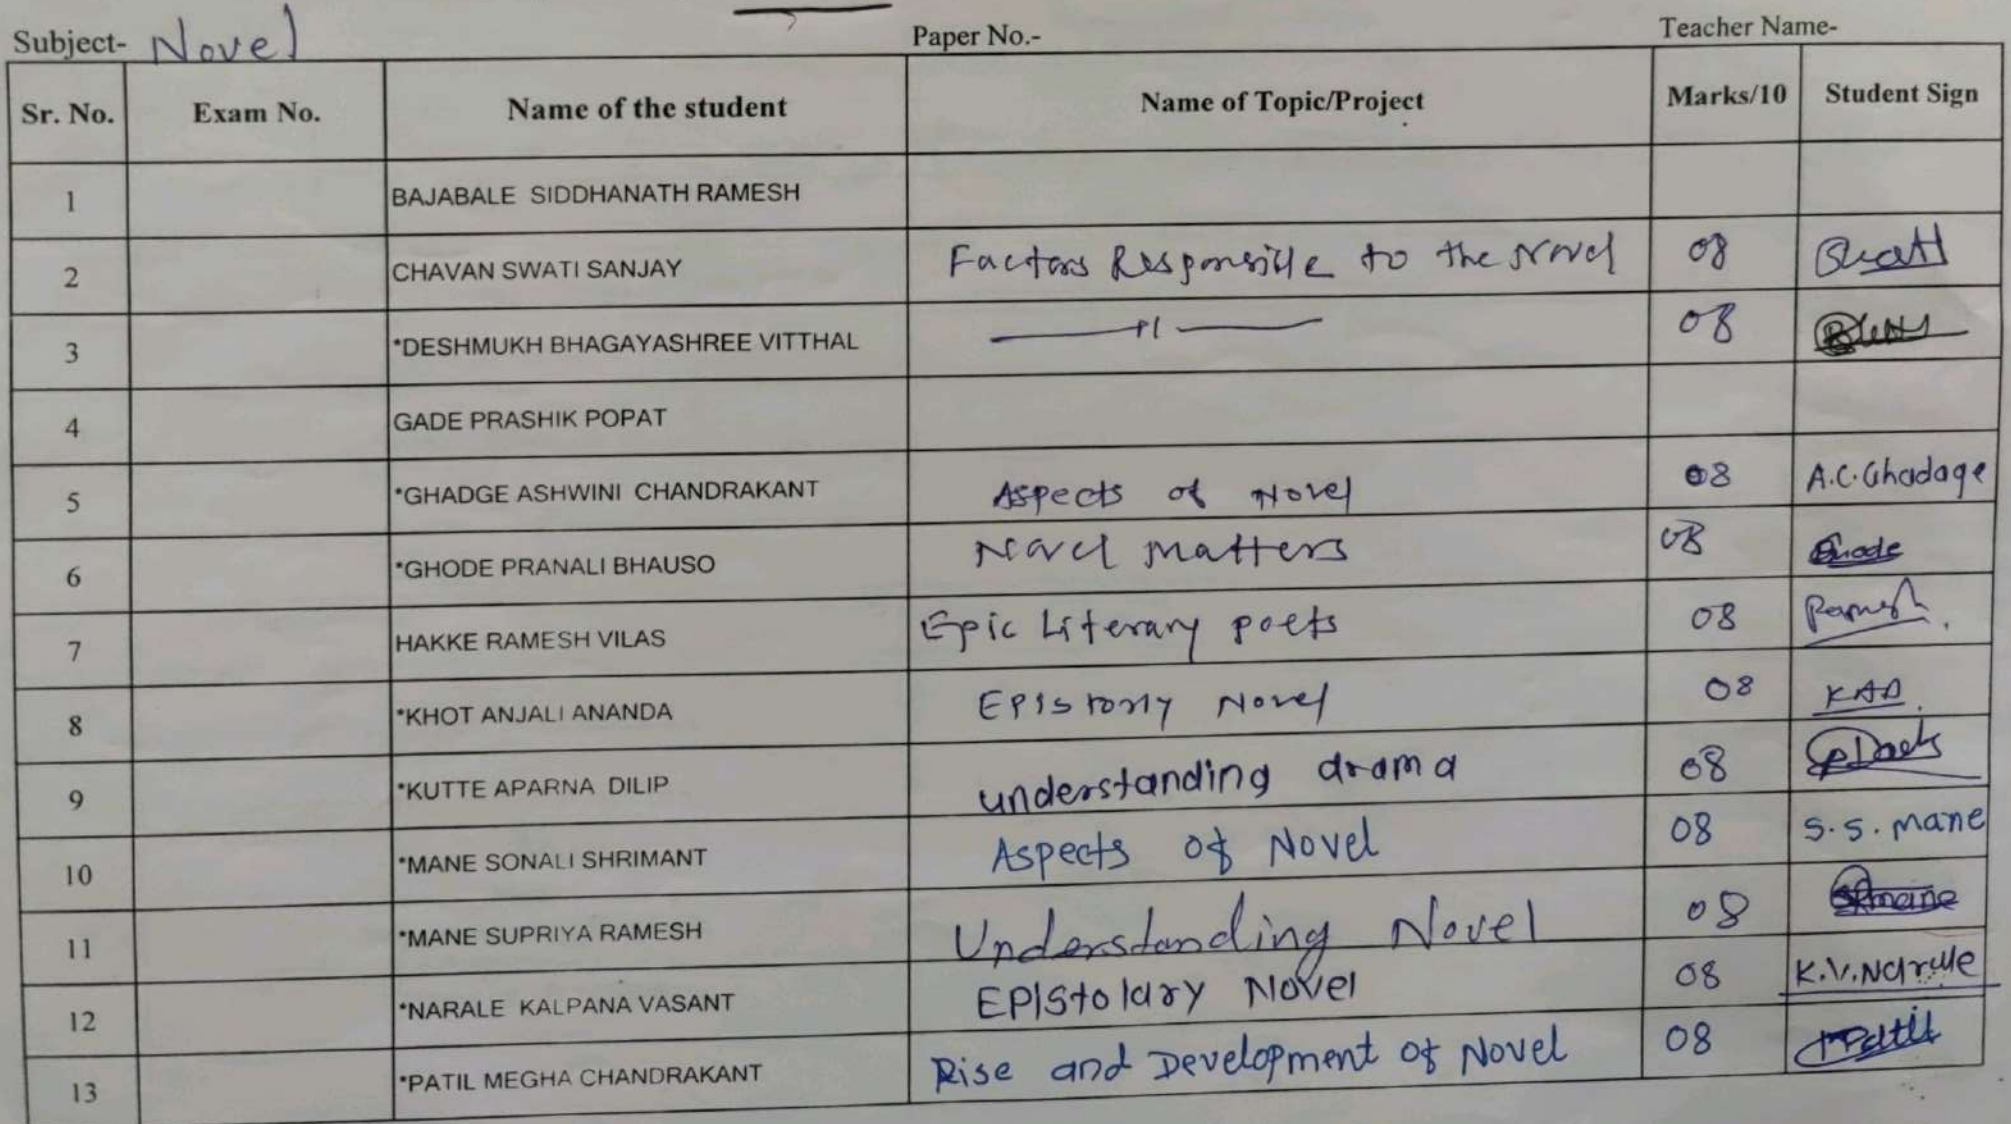 Subject- Novel Paper No.- Teacher Name-
Sr. No. Exam No. Name of the student Name of Topic/Project Marks/10 Student Sign
1 BAJABALE SIDDHANATH RAMESH
2 CHAVAN SWATI SANJAY Factors Responsible to the Novel 08
3 *DESHMUKH BHAGAYASHREE VITTHAL —11— 08
4 GADE PRASHIK POPAT
5 *GHADGE ASHWINI CHANDRAKANT Aspects of Novel 08 A.C.Ghadage
6 *GHODE PRANALI BHAUSO Novel Matters 08 Ghode
7 HAKKE RAMESH VILAS Epic Literary poets 08 Ramesh
8 *KHOT ANJALI ANANDA Epistorry Novel 08 KAA
9 *KUTTE APARNA DILIP understanding drama 08
10 *MANE SONALI SHRIMANT Aspects of Novel 08 S.S. Mane
11 *MANE SUPRIYA RAMESH Understanding Novel 08 SRmane
12 *NARALE KALPANA VASANT EPIStolary Novel 08 K.V.Narale
13 *PATIL MEGHA CHANDRAKANT Rise and Development of Novel 08 Patil